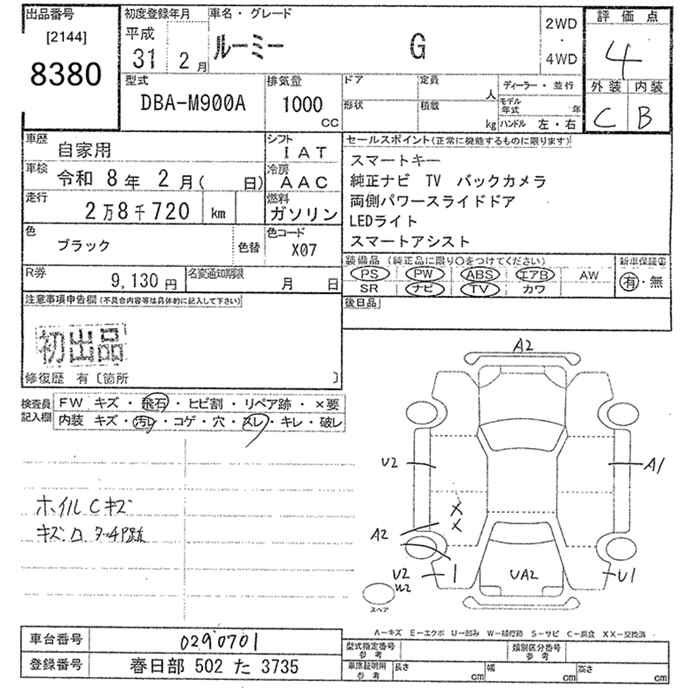 出品番号 [2144] 8380
初度登録年月 平成 31 2月
車名・グレード ルーミー G
2WD ・ 4WD
評価点 4
外装 C 内装 B
型式 DBA-M900A
排気量 1000 CC
ドア 形状
定員 人
積載 kg
ディーラー・並行
モデル年式 年
ハンドル 左・右
車歴 自家用
シフト IAT
車検 令和 8年 2月( 日)
冷房 AAC
走行 2万8千720 km
燃料 ガソリン
色 ブラック 色替
色コード X07
R券 9,130円
名変通知期限 月 日
セールスポイント(正常に機能するものに限ります)
スマートキー
純正ナビ TV バックカメラ
両側パワースライドドア
LEDライト
スマートアシスト
装備品(純正品に限り○をつけてください)
PS PW ABS エアB AW
SR ナビ TV カワ
新車保証書 有・無
後日品
注意事項申告欄(不具合内容等は具体的に記入して下さい)
初出品
修復歴 有〔箇所 〕
検査員記入欄
FW キズ・飛石・ヒビ割・リペア跡・×要
内装 キズ・汚レ・コゲ・穴・スレ・キレ・破レ
ホイルCキズ
A2
U2
A1
X
X
A2
U2
W2
UA2
U1
スペア
A-キズ E-エクボ U-凹み W-補修跡 S-サビ C-腐食 XX-交換済
車台番号 0290701
登録番号 春日部 502 た 3735
型式指定番号 参考
類別区分番号 参考
車庫証明用 参考
長さ cm
幅 cm
高さ cm